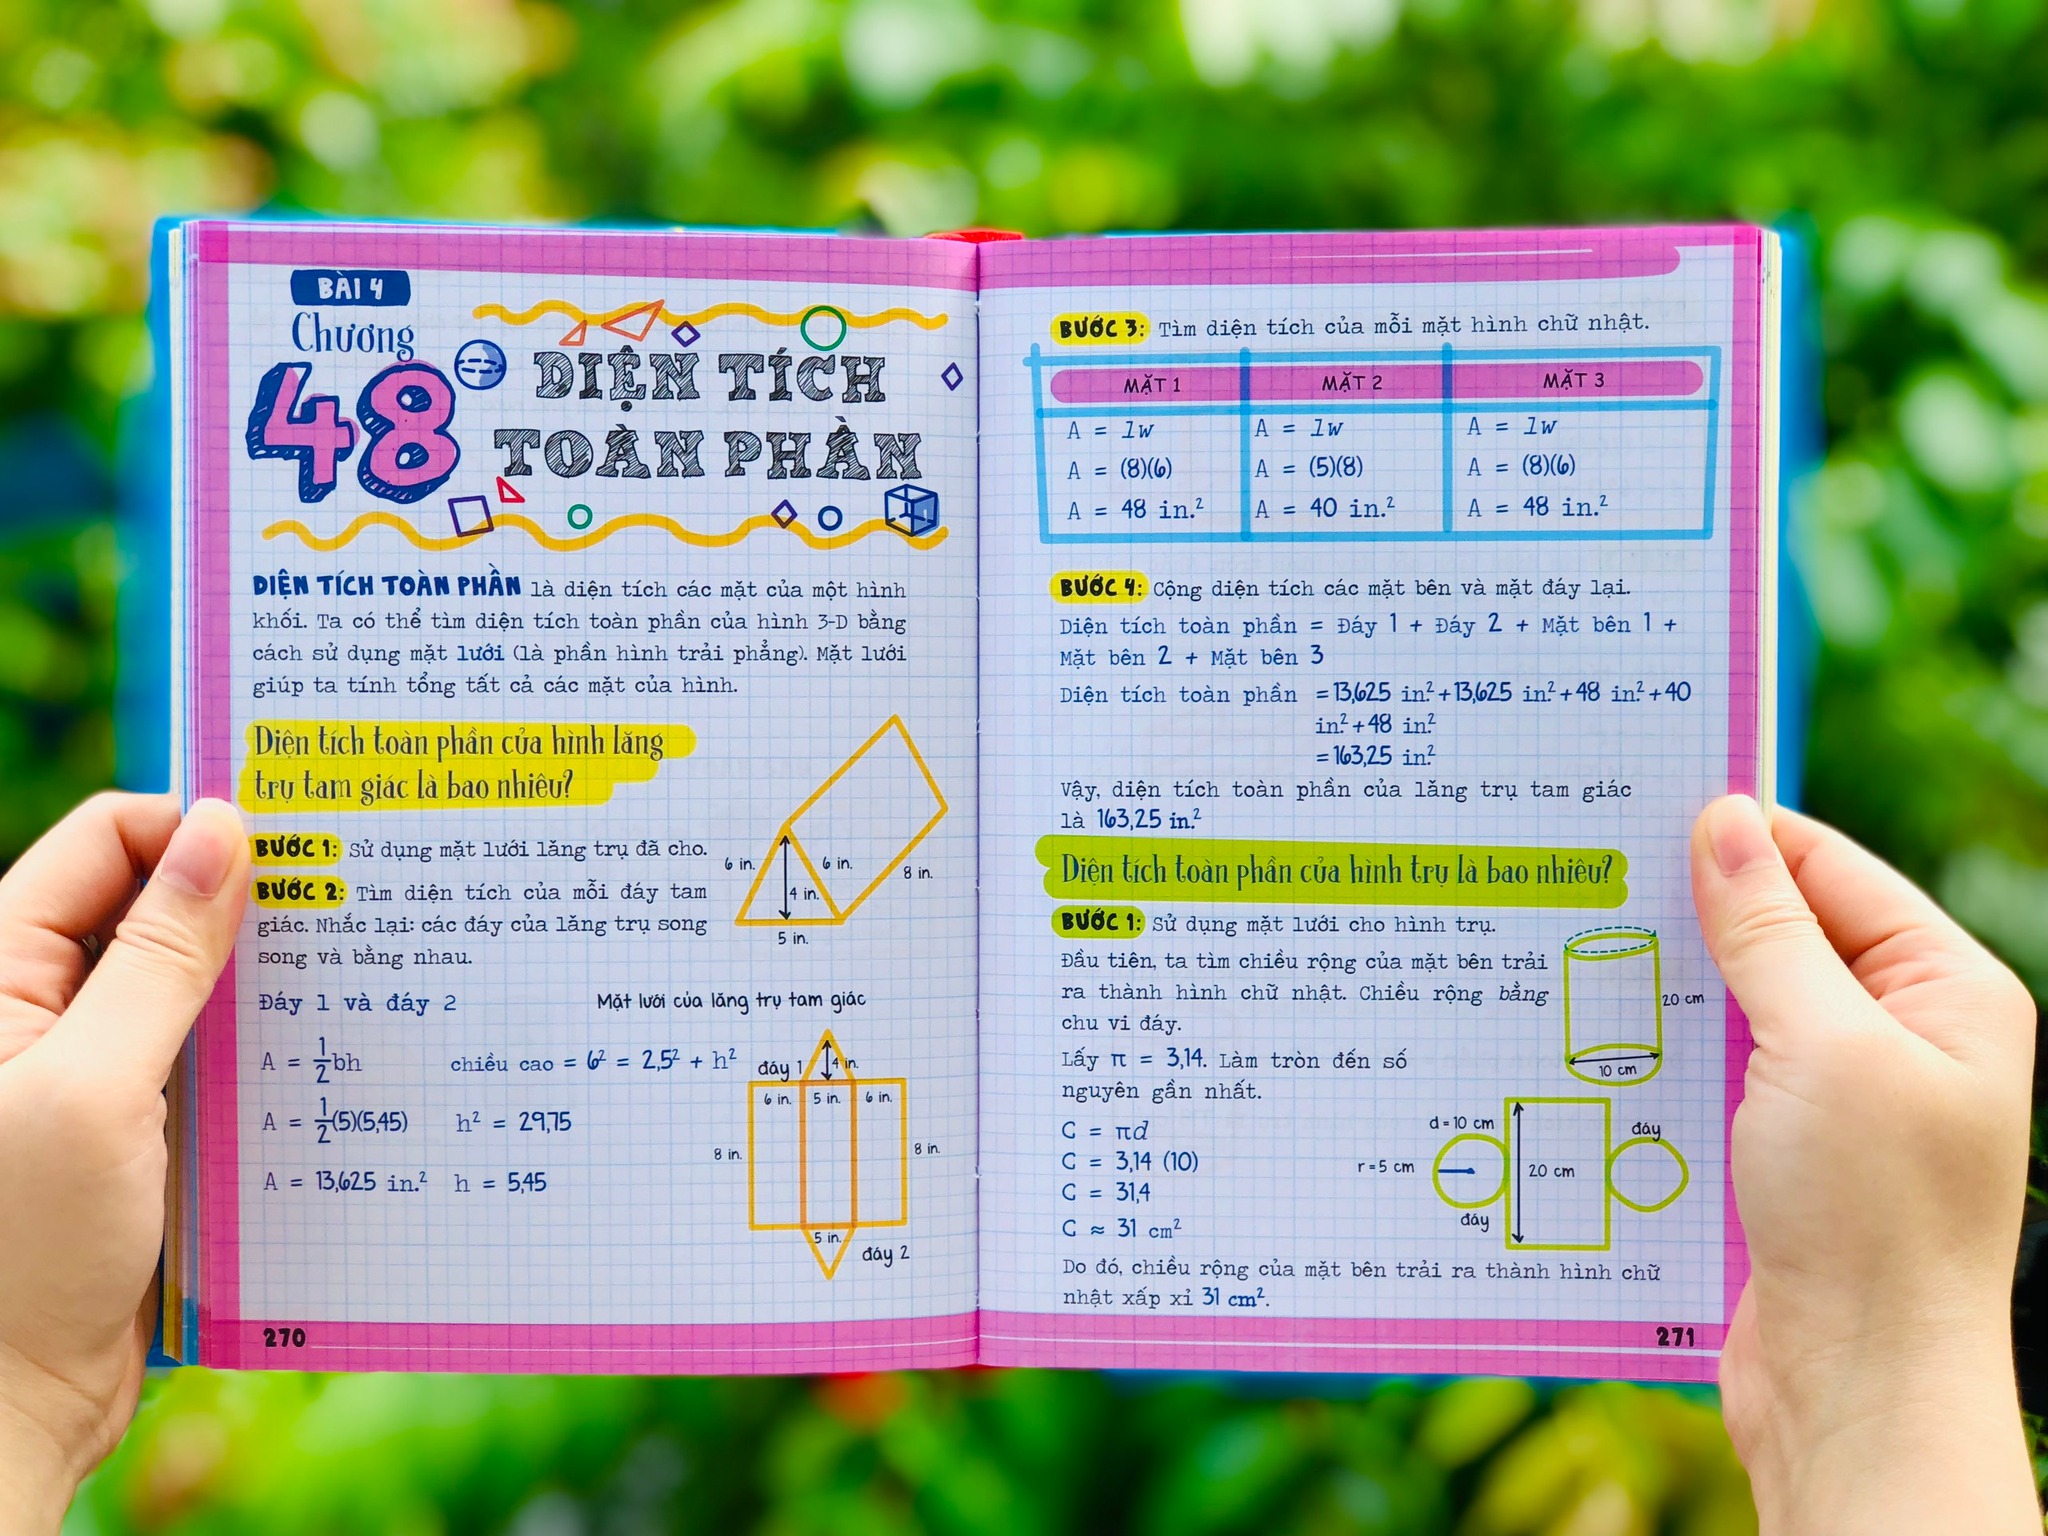 BÀI 4
Chương
48
DIỆN TÍCH
TOÀN PHẦN
DIỆN TÍCH TOÀN PHẦN là diện tích các mặt của một hình
khối. Ta có thể tìm diện tích toàn phần của hình 3-D bằng
cách sử dụng mặt lưới (là phần hình trải phẳng). Mặt lưới
giúp ta tính tổng tất cả các mặt của hình.
Diện tích toàn phần của hình lăng
trụ tam giác là bao nhiêu?
BƯỚC 1: Sử dụng mặt lưới lăng trụ đã cho.
BƯỚC 2: Tìm diện tích của mỗi đáy tam
giác. Nhắc lại: các đáy của lăng trụ song
song và bằng nhau.
6 in.
6 in.
8 in.
4 in.
5 in.
Đáy 1 và đáy 2
A = 1/2 bh
A = 1/2 (5)(5,45)
A = 13,625 in.²
chiều cao = 6² = 2,5² + h²
h² = 29,75
h = 5,45
Mặt lưới của lăng trụ tam giác
đáy 1
4 in.
6 in.
5 in.
6 in.
8 in.
8 in.
5 in.
đáy 2
270
BƯỚC 3: Tìm diện tích của mỗi mặt hình chữ nhật.
MẶT 1 MẶT 2 MẶT 3
A = lw A = lw A = lw
A = (8)(6) A = (5)(8) A = (8)(6)
A = 48 in.² A = 40 in.² A = 48 in.²
BƯỚC 4: Cộng diện tích các mặt bên và mặt đáy lại.
Diện tích toàn phần = Đáy 1 + Đáy 2 + Mặt bên 1 +
Mặt bên 2 + Mặt bên 3
Diện tích toàn phần = 13,625 in.² + 13,625 in.² + 48 in.² + 40
in.² + 48 in.²
= 163,25 in.²
Vậy, diện tích toàn phần của lăng trụ tam giác
là 163,25 in.²
Diện tích toàn phần của hình trụ là bao nhiêu?
BƯỚC 1: Sử dụng mặt lưới cho hình trụ.
Đầu tiên, ta tìm chiều rộng của mặt bên trải
ra thành hình chữ nhật. Chiều rộng bằng
chu vi đáy.
Lấy π = 3,14. Làm tròn đến số
nguyên gần nhất.
20 cm
10 cm
C = πd
C = 3,14 (10)
C = 31,4
C ≈ 31 cm²
d = 10 cm
r = 5 cm
đáy
20 cm
đáy
Do đó, chiều rộng của mặt bên trải ra thành hình chữ
nhật xấp xỉ 31 cm².
271